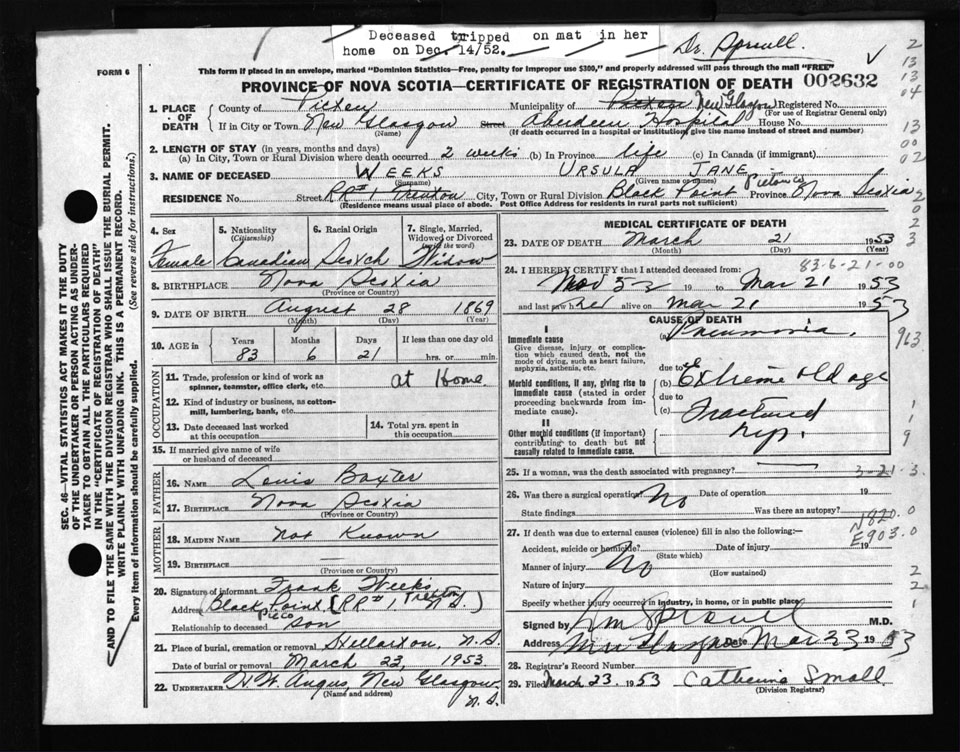 Deceased tripped on mat in her
home on Dec. 14/52.
Dr. Sproull.
FORM 6
This form if placed in an envelope, marked "Dominion Statistics—Free, penalty for improper use $300," and properly addressed will pass through the mail "FREE"
PROVINCE OF NOVA SCOTIA—CERTIFICATE OF REGISTRATION OF DEATH 002632
SEC. 46—VITAL STATISTICS ACT MAKES IT THE DUTY
OF THE UNDERTAKER OR PERSON ACTING AS UNDER-
TAKER TO OBTAIN ALL THE PARTICULARS REQUIRED
IN THE "CERTIFICATE OF REGISTRATION OF DEATH"
AND TO FILE THE SAME WITH THE DIVISION REGISTRAR WHO SHALL ISSUE THE BURIAL PERMIT.
WRITE PLAINLY WITH UNFADING INK. THIS IS A PERMANENT RECORD.
Every item of information should be carefully supplied. (See reverse side for instructions.)
1. PLACE OF DEATH
County of Pictou Municipality of Pictou New Glasgow Registered No.
(For use of Registrar General only)
If in City or Town New Glasgow Street Aberdeen Hospital House No.
(Name) (If death occurred in a hospital or institution, give the name instead of street and number)
2. LENGTH OF STAY (in years, months and days)
(a) In City, Town or Rural Division where death occurred 2 weeks (b) In Province life (c) In Canada (if immigrant)
3. NAME OF DECEASED WEEKS URSULA JANE
(Surname) (Given name or names)
RESIDENCE No. Street RR#1 Trenton City, Town or Rural Division Black Point Pictou Co Province Nova Scotia
(Residence means usual place of abode. Post Office Address for residence in rural parts not sufficient)
4. Sex
Female
5. Nationality
(Citizenship)
Canadian
6. Racial Origin
Scotch
7. Single, Married,
Widowed or Divorced
(Write the word)
Widow
8. BIRTHPLACE Nova Scotia
(Province or Country)
9. DATE OF BIRTH August 28 1869
(Month) (Day) (Year)
10. AGE in
Years Months Days If less than one day old
83 6 21 hrs. or min.
OCCUPATION
11. Trade, profession or kind of work as
spinner, teamster, office clerk, etc. at Home
12. Kind of industry or business, as cotton-
mill, lumbering, bank, etc.
13. Date deceased last worked
at this occupation
14. Total yrs. spent in
this occupation
15. If married give name of wife
or husband of deceased
FATHER
16. NAME Louis Baxter
17. BIRTHPLACE Nova Scotia
(Province or Country)
MOTHER
18. MAIDEN NAME Not Known
19. BIRTHPLACE —
(Province or Country)
20. Signature of informant Frank Weeks
Address Black Point Picto Co (RR#1, Trenton N.S.)
Relationship to deceased son
21. Place of burial, cremation or removal Stellarton, N.S
Date of burial or removal March 23, 1953
22. UNDERTAKER H.W. Angus, New Glasgow
N.S.
(Name and address)
MEDICAL CERTIFICATE OF DEATH
23. DATE OF DEATH March 21 1953
(Month) (Day) (Year)
83-6-21-00
24. I HEREBY CERTIFY that I attended deceased from:
Nov 52 19 to Mar 21 1953
and last saw her alive on Mar 21 1953
CAUSE OF DEATH
I
Immediate cause (a) Pneumonia.
Give disease, injury or complica-
tion which caused death, not the
mode of dying, such as heart failure,
asphyxia, asthenia, etc.
due to
Morbid conditions, if any, giving rise to
immediate cause (stated in order
proceeding backwards from im-
mediate cause).
(b) Extreme old age
due to
(c) Fractured
hip.
II
Other morbid conditions (if important)
contributing to death but not
causally related to immediate cause.
25. If a woman, was the death associated with pregnancy?
3-21-3.
26. Was there a surgical operation? No Date of operation 19
State findings Was there an autopsy?
N820.0
E903.0
27. If death was due to external causes (violence) fill in also the following:—
Accident, suicide or homicide? Date of injury 19
(State which)
Manner of injury No
(How sustained)
Nature of injury
Specify whether injury occurred in industry, in home, or in public place
Signed by Sproull M.D.
Address New Glasgow Date Mar 23 1953
28. Registrar's Record Number
29. Filed March 23. 1953 Catherine Small
(Division Registrar)
2
13
13
04
13
00
02
2
0
2
3
963
1
1
9
2
2
1